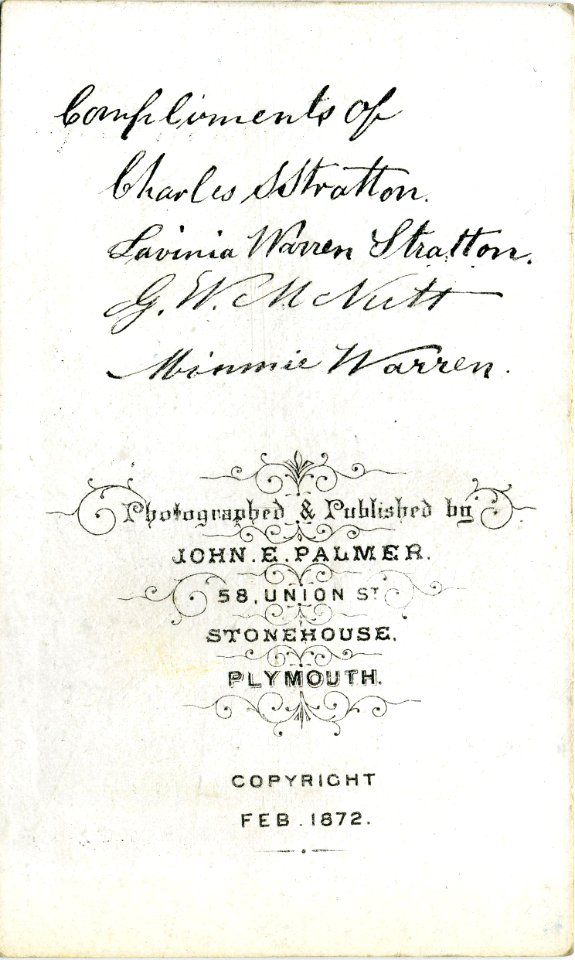 Compliments of
Charles S Stratton.
Lavinia Warren Stratton.
G. W. M Nutt
Minnie Warren.
Photographed & Published by
JOHN. E. PALMER.
58, UNION ST
STONEHOUSE.
PLYMOUTH.
COPYRIGHT
FEB. 1872.